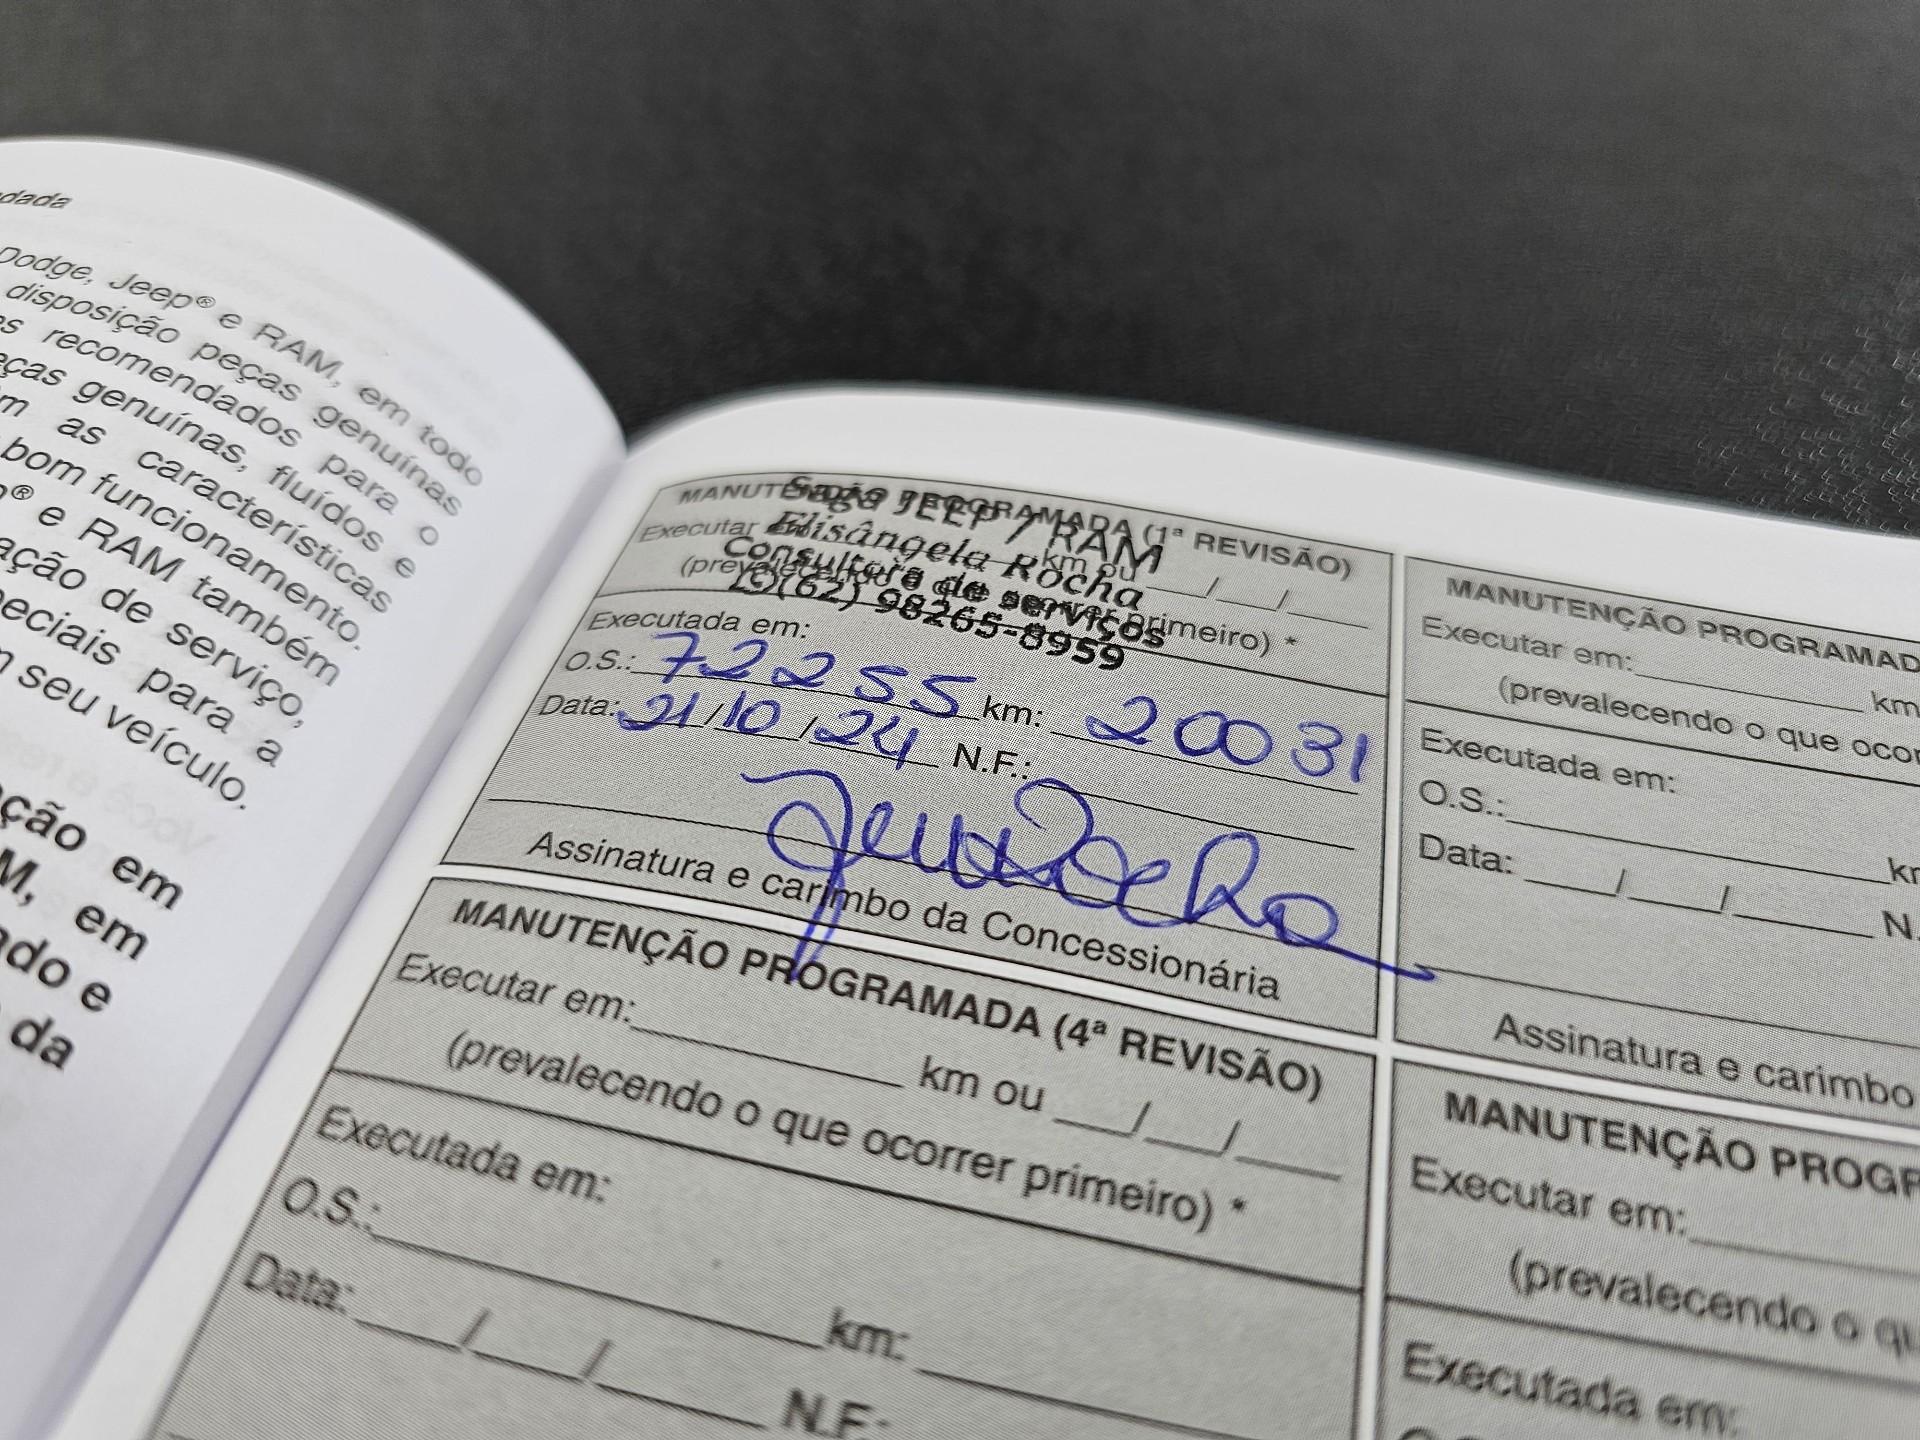 dada
Dodge, Jeep® e RAM, em todo
disposição peças genuínas
s recomendados para o
eças genuínas, fluídos e
m as características
bom funcionamento.
® e RAM também
ação de serviço,
peciais para a
m seu veículo.
ção em
M, em
ado e
da
MANUTENÇÃO PROGRAMADA (1ª REVISÃO)
Saga JEEP / RAM
Executar em: km ou / /
Elisângela Rocha
Consultora de serviços
(prevalecendo o que ocorrer primeiro) *
(62) 98265-8959
Executada em:
O.S.: 72255 km: 20031
Data: 21/10/24 N.F.:
Assinatura e carimbo da Concessionária
MANUTENÇÃO PROGRAMAD
Executar em: km
(prevalecendo o que ocor
Executada em:
O.S.: km
Data: / / N.
Assinatura e carimbo
MANUTENÇÃO PROGRAMADA (4ª REVISÃO)
Executar em: km ou / /
(prevalecendo o que ocorrer primeiro) *
Executada em:
O.S.: km:
Data: / / N.F.:
MANUTENÇÃO PROGR
Executar em:
(prevalecendo o qu
Executada em: